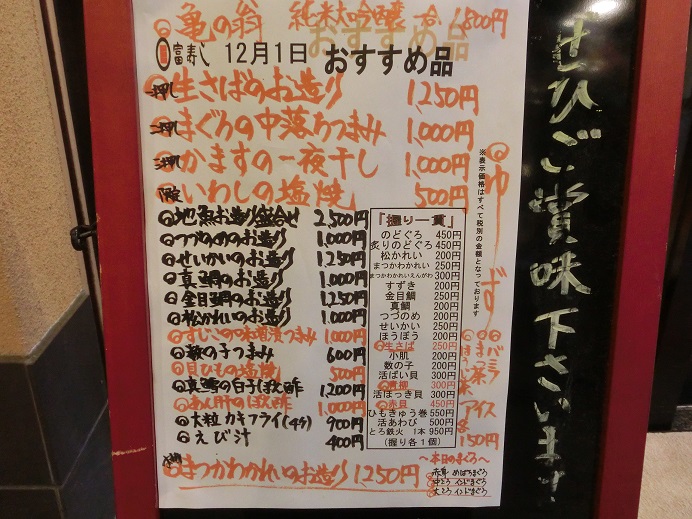 亀の翁 純米大吟醸 一合 1,800円
おすすめ品
富寿し 12月1日 おすすめ品
一押し 生さばのお造り 1,250円
二押し まぐろの中落ちつまみ 1,000円
三押し かますの一夜干し 1,000円
限定 いわしの塩焼 500円
地魚お造り盛合せ 2,500円
つづのめのお造り 1,000円
せいかいのお造り 1,250円
真鯛のお造り 1,000円
金目鯛のお造り 1,250円
松かれいのお造り 1,000円
すじこの味噌漬つまみ 1,000円
数の子つまみ 600円
貝ひもの塩焼 500円
真鱈の白子ぽん酢 1,200円
あん肝のぽん酢 1,000円
大粒カキフライ(4ケ) 900円
えび汁 400円
まつかわかれいのお造り 1250円
「握り一貫」
のどぐろ 450円
炙りのどぐろ 450円
松かれい 200円
まつかわかれい 250円
まつかわかれいえんがわ 300円
すずき 200円
金目鯛 250円
真鯛 200円
つづのめ 200円
せいかい 250円
ほうぼう 200円
生さば 250円
小肌 200円
数の子 200円
活ばい貝 300円
青柳 300円
活ほっき貝 300円
赤貝 450円
ひもきゅう巻 550円
活あわび 500円
とろ鉄火 1本 950円
(握り各1個)
※表示価格はすべて税別の金額となっております
ゆーず
バニラ
まっ茶
ほうじ茶
アイス
各150円
〜本日のまぐろ〜
赤身 めばちまぐろ
中とろ インドまぐろ
大とろ インドまぐろ
ぜひご賞味下さいませ